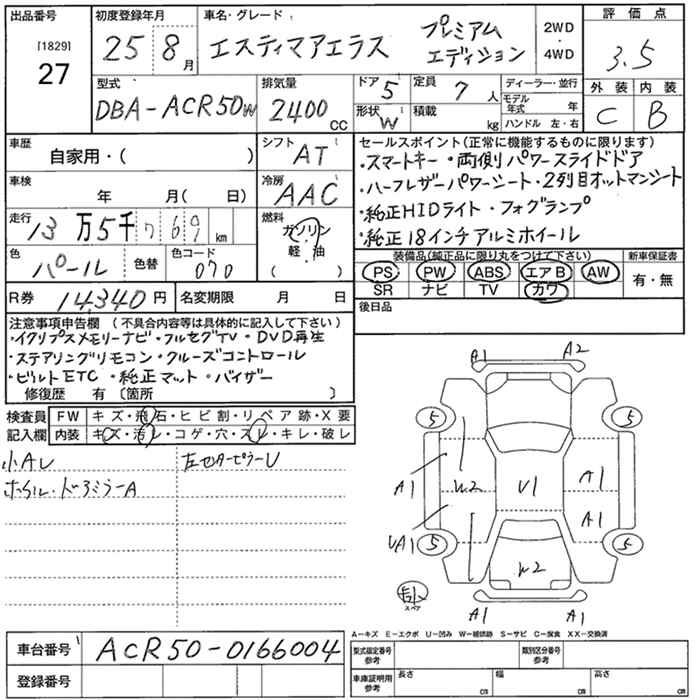 出品番号 初度登録年月 車名・グレード 評価点
[1829]
27
25 8月 エスティマアエラス プレミアム
エディション
2WD
・
4WD
3.5
型式 排気量 ドア 5 定員 7人 ディーラー・並行 外装 内装
DBA-ACR50W 2400cc 形状 W 積載 kg モデル年式 年 C B
ハンドル 左・右
車歴 シフト セールスポイント(正常に機能するものに限ります)
自家用・( ) AT ・スマートキー・両側パワースライドドア
車検 冷房 ・ハーフレザーパワーシート・2列目オットマンシート
年 月( 日) AAC ・純正HIDライト・フォグランプ
走行 13万5千769km 燃料 ・純正18インチアルミホイール
ガソリン
軽・油
色 色替 色コード 装備品(純正品に限り丸をつけて下さい) 新車保証書
パール 070 PS PW ABS エアB AW 有・無
SR ナビ TV カワ
R券 14,340円 名変期限 月 日 後日品
注意事項申告欄 (不具合内容等は具体的に記入して下さい)
・イクリプスメモリーナビ・フルセグTV・DVD再生
・ステアリングリモコン・クルーズコントロール
・ビルトETC・純正マット・バイザー
修復歴 有〔箇所 〕
検査員 FW キズ・飛石・ヒビ割・リペア跡・X要
記入欄 内装 キズ・汚レ・コゲ・穴・スレ・キレ・破レ
小AU 左センターピラーU
ホイル・ドアミラーA
A1 A2
5 5
A1 W2 U1 A1
UA1 A1
5 5
W2
スペア
A1 A1
A−キズ E−エクボ U−凹み W−補修跡 S−サビ C−腐食 XX−交換済
車台番号 ACR50-0166004 型式指定番号 参考 類別区分番号 参考
登録番号 車庫証明用 参考 長さ cm 幅 cm 高さ cm